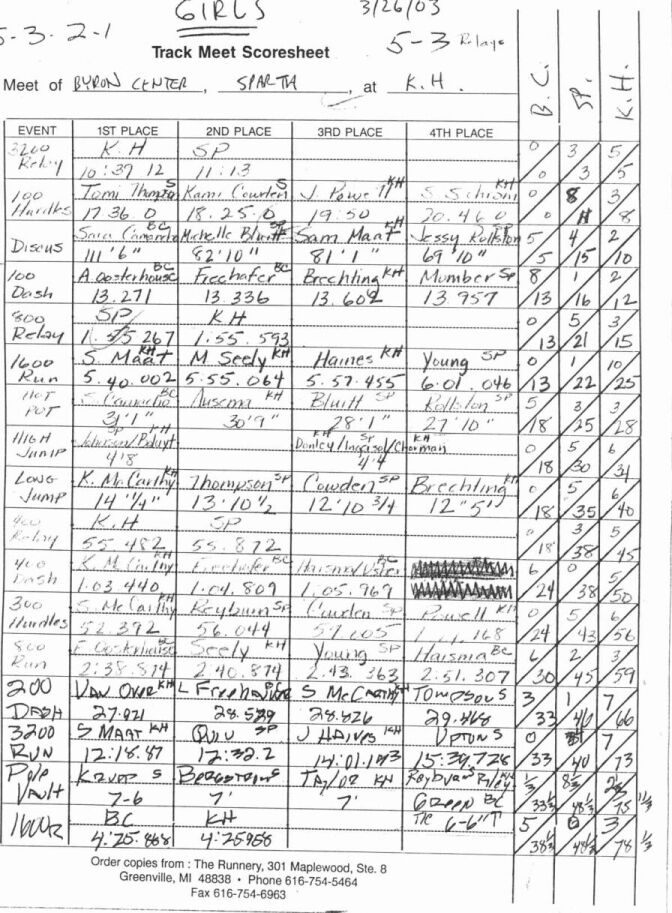 GIRLS 3/26/03
5-3-2-1
5-3 Relays
Track Meet Scoresheet
Meet of BYRON CENTER, SPARTA, at K.H.
B.C. SP. K.H.
EVENT 1ST PLACE 2ND PLACE 3RD PLACE 4TH PLACE
3200 K.H SP 0 3 5
Relay 10:39 12 11:13 0 3 5
100 Tami Thompson S Kami Cowden S J Powell KH S Schism KH 0 8 3
Hurdles 17.36 0 18.25.0 19.50 20.46 0 0 11 8
Discus Sara Camancho BC Michelle Bluitt SP Sam Maat KH Jessy Rollston 5 4 2
111'6" 82'10" 81'1" 69'10" 5 15 10
100 A. Oosterhouse BC Freehafer BC Brechting KH Mumber SP 8 1 2
Dash 13.271 13.336 13.602 13.957 13 16 12
800 SP KH 0 5 3
Relay 267 1:55.593 13 21 15
1600 S. Maat KH M Seely KH Haines KH Young SP 0 1 10
Run 5.40.002 5.55.064 5.57.455 6.01.046 13 22 25
S. Camancho BC KH Bluitt SP Rollston SP 5 3 3
POT 31'1" 30'9" 28'1" 27'10" 18 25 28
HIGH SP KH KH SP KH 0 5 6
JUMP 4'8 4'4 18 30 34
LONG K. McCarthy KH Thompson SP Cowden SP Brechting KH 0 5 6
JUMP 13'10½ 12'10 3/4 12"5" 18 35 40
400 K.H SP 0 3 5
Relay 55.482 55.872 18 38 45
400 K. McCarthy KH Freehafer BC Haisma BC 6 0 5
Dash 1:03.440 1:04.809 1:05.969 24 38 50
300 S. McCarthy KH Reyburn SP Cowden SP Powell KH 0 5 6
Hurdles 52.392 56.044 168 24 43 56
800 Oosterhouse BC Seely KH Young SP Haisma BC 6 2 3
Run 2:38.814 2.40.874 2.43.363 2:51.307 30 45 59
200 KH L S McCarthy KH S 3 1 7
DASH 27.921 28.529 28.826 29.468 33 46 66
3200 S MAAT KH SP J HAINES KH UPTON S 0 7
RUN 12:18.87 12:32.2 14:01.143 15:39.728 33 40 73
Pole S S TAYLOR KH KH 1/3 8⅓
VAULT 7-6 7' 7' GREEN BC 33⅓ 48⅓ 75 1/3
1600R BC KH TIE 6-6" 5 0 3
4:25.868 4:25958 38⅓ 48⅓ 78 ⅓
Order copies from : The Runnery, 301 Maplewood, Ste. 8
Greenville, MI 48838 • Phone 616-754-5464
Fax 616-754-6963